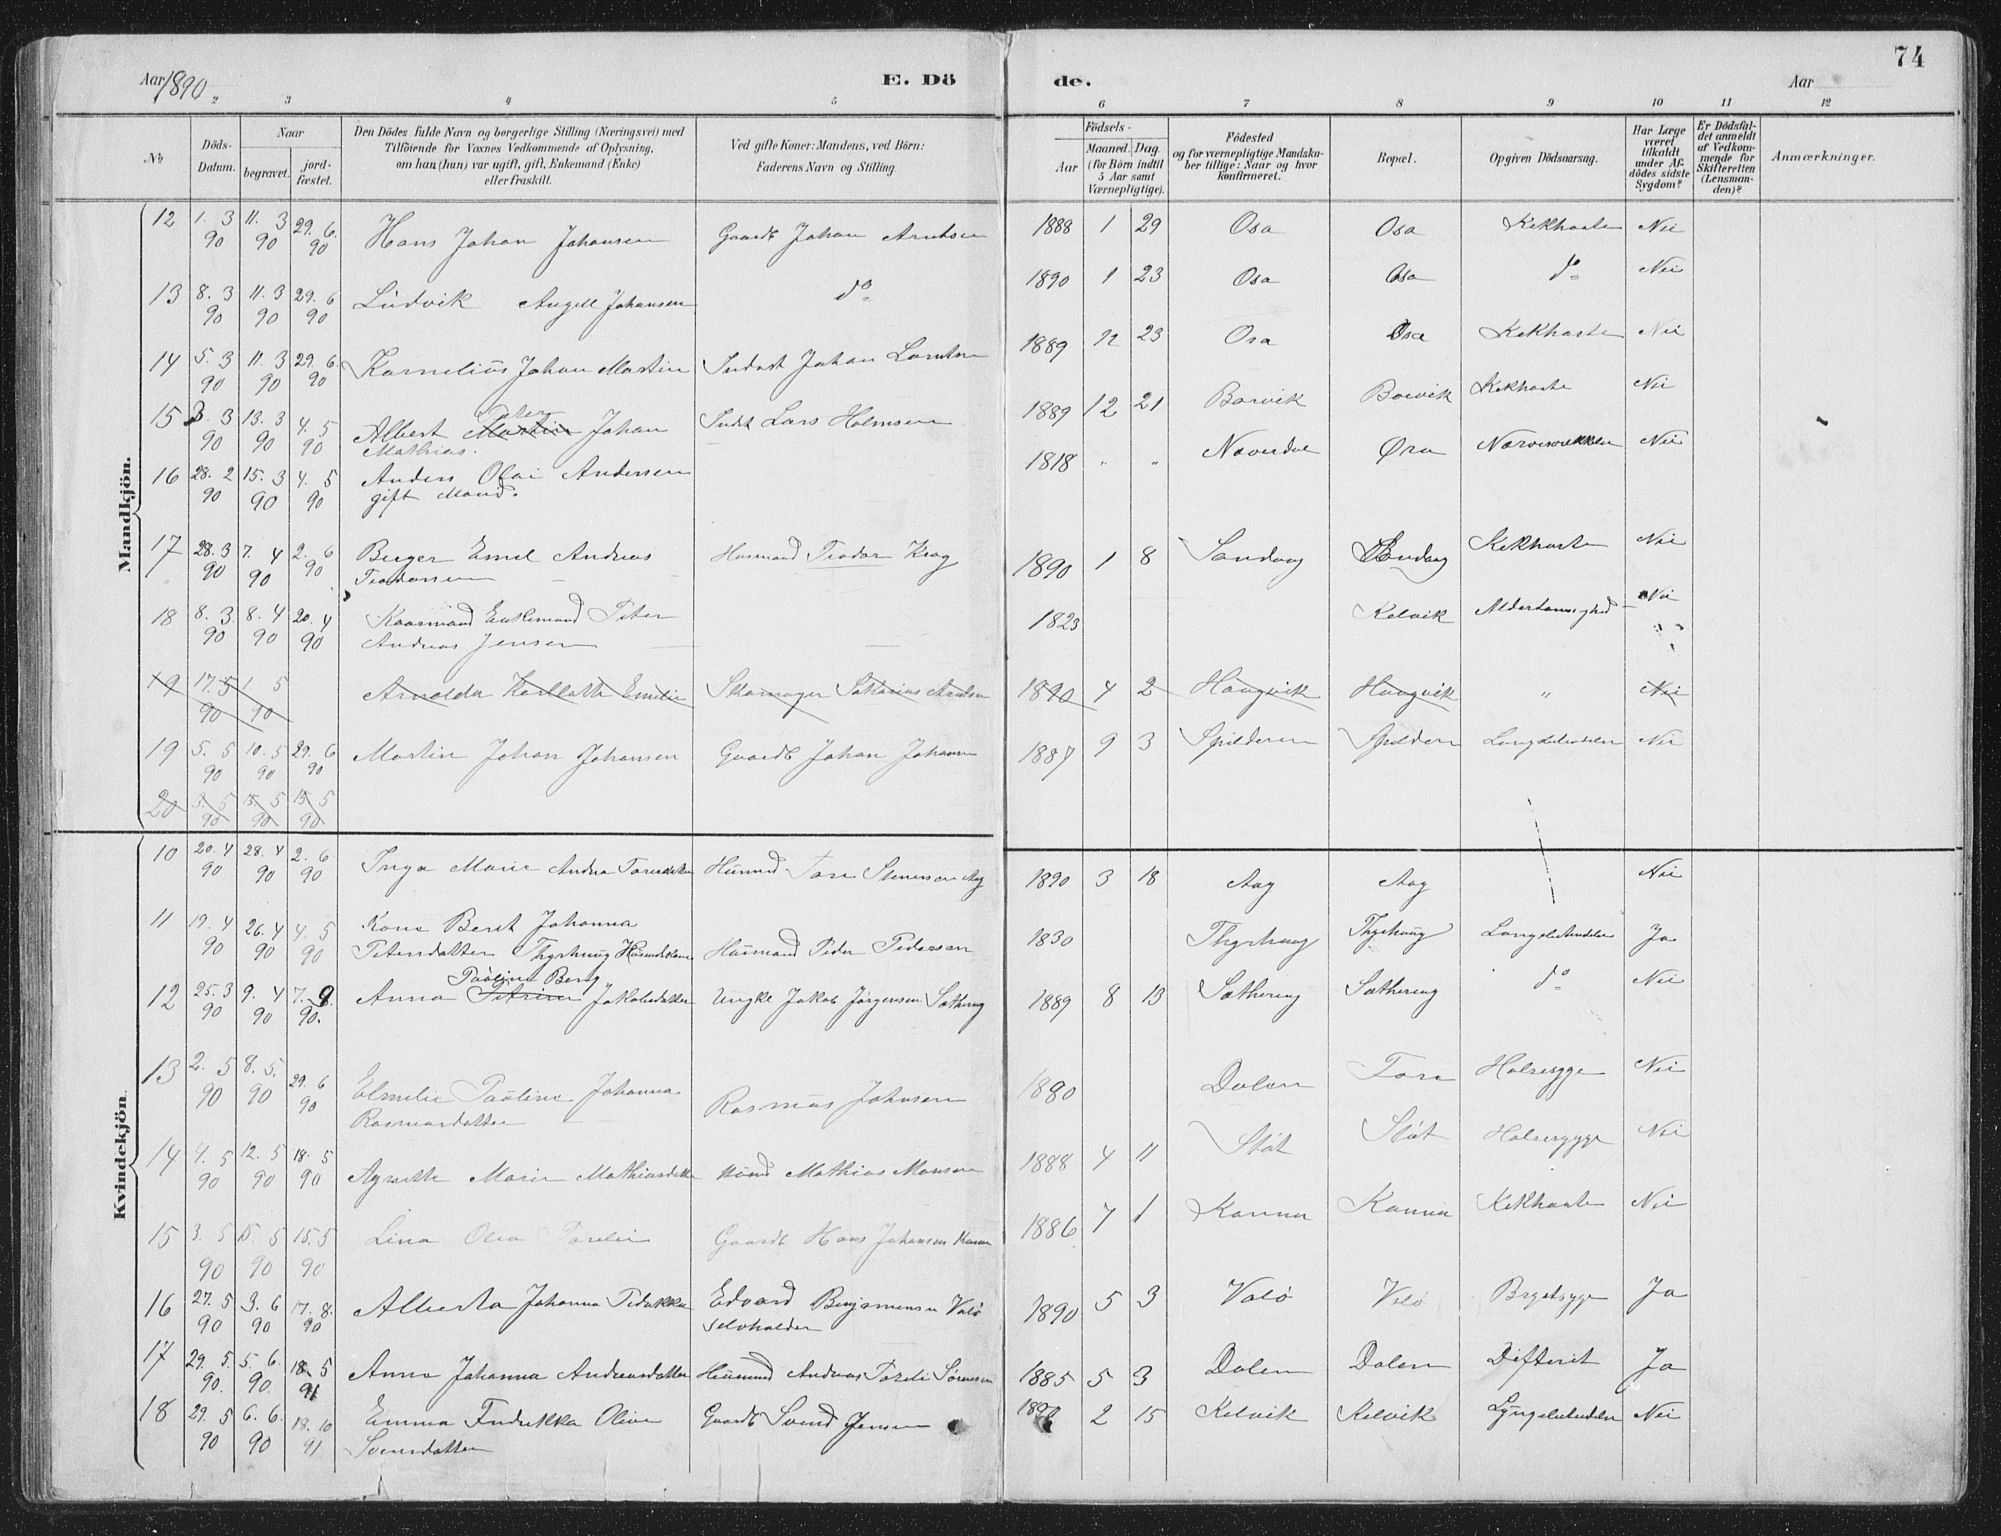 74
Aar 1890
E. Dö
de.
Aar
2 3 4 5 6 7 8 9 10 11 12
№
Döds-Datum.
Naar
begravet.
jord-fæstet.
Den Dödes fulde Navn og borgerlige Stilling (Næringsvei) med
Tilföiende for Voxnes Vedkommende af Oplysning,
om han (hun) var ugift, gift, Enkemand (Enke)
eller fraskilt.
Ved gifte Koner: Mandens, ved Börn:
Faderens Navn og Stilling.
Födsels-
Aar
Maaned. Dag.
(for Börn indtil
5 Aar samt
Værnepligtige).
Födested
og for værnepligtige Mandska-
ber tillige: Naar og hvor
konfirmeret.
Bopæl.
Opgiven Dödsaarsag.
Har Læge
været
tilkaldt
under Af-
dödes sidste
Sygdom?
Er Dödsfal-
det anmeldt
af Vedkom-
mende for
Skifteretten
(Lensman-
den)?
Anmærkninger.
Mandkjön.
12 1. 3 90 11. 3 90 29. 6. 90 Hans Johan Johansen Gaardb Johan Arntsen 1888 1 29 Osa Osa Kikhoste Nei
13 8. 3 90 11. 3 90 29. 6 90 Ludvik Angell Johansen do 1890 1 23 Osa Osa do Nei
14 5. 3 90 11. 3 90 29. 6. 90 Kornelius Johan Martin Inderst Johan Larntsen 1889 12 23 Osa Osa Kikhoste Nei
15 3. 3 90 13. 3 90 4. 5 90 Albert Martin Peter Johan Indst Lars Holmsen 1889 12 21 Borvik Borvik Kikhoste Nei
Mathias.
16 28. 2 90 15. 3 90 4. 5 90 Anders Olai Andersen 1818 " " Næverdal Øra Nei
gift Mand.
17 28. 3 90 7. 4 90 2. 6 90 Birger Emil Andreas Husmand Teodor Krog 1890 1 8 Sandvaag Sandvaag Kikhoste Nei
Teodorsen
18 8. 3. 90 8. 4 90 20. 4 90 Kaarmand Enkemand Peter 1823 Kelvik Alderdomssvaghed Nei
Andreas Jensen
19 17. 5 90 1. 5 90 Arnolda Karllotte Emilie Skomager Arntsen 1890 4 2 Haagvik Haagvik " Nei
19 5. 5 90 10. 5 90 29. 6 90 Martin Johan Johansen Gaardb Johan Johansen 1887 9 3 Spilderen Spilderen Nei
20 3. 5 90 15. 5 90 15. 5 90
Kvindekjön.
10 20. 4 90 28. 4 90 2. 6. 90 Inga Marie Andrea Toresdatter Husmd Tore Stenersen Aag 1890 3 18 Aag Aag Nei
11 19. 4 90 26. 4 90 4. 5 90 Kone Beret Johanna
Petersdatter Thyrhaug Husmandskone Husmand Peder Pedersen 1830 Thyrhaug Thyrhaug Ja
12 25. 3 90 9. 4 90 7. 9. 90. Anna Petrine Pauline Berg Jakobsdatter Ungkl Jakob Jørgensen Sæthering 1889 8 13 Sæthering Sæthering do Nei
13 2. 5 90 8. 5. 90 29. 6 90 Elmelie Pauline Johanna Rasmus Johnsen 1890 Dalen Forø Halssyge Nei
Rasmusdatter
14 4. 5 90 12. 5 90 18. 5 90 Agnethe Marie Mathiasdatter Mathias Monsen 1888 4 11 Støt Støt Halssyge Nei
15 3. 5 90 15. 5 90 15. 5 90 Lina Olea Parelie Gaardb Hans Johansen Kunna 1886 7 1 Kunna Kunna Kikhoste Nei
16 27. 5 90 3. 6 90 17. 8. 90 Alberta Johanna Gaardb Edvard Benjaminsen Valø 1890 5 3 Valø Valø Brystsyge Ja
Selvholder
17 29. 5. 90. 5. 6. 90. 18. 5 91 Anna Johanna Andreasdatter Husmd Andreas Pareli Sørensen 1885 5 3 Dalen Dalen Difterit Ja
18 29. 5 90 6. 6. 90 18. 10 91 Emma Fredrikka Olive Gaardb Svend Jensen 2 15 Kelvik Kelvik Nei
Svensdatter